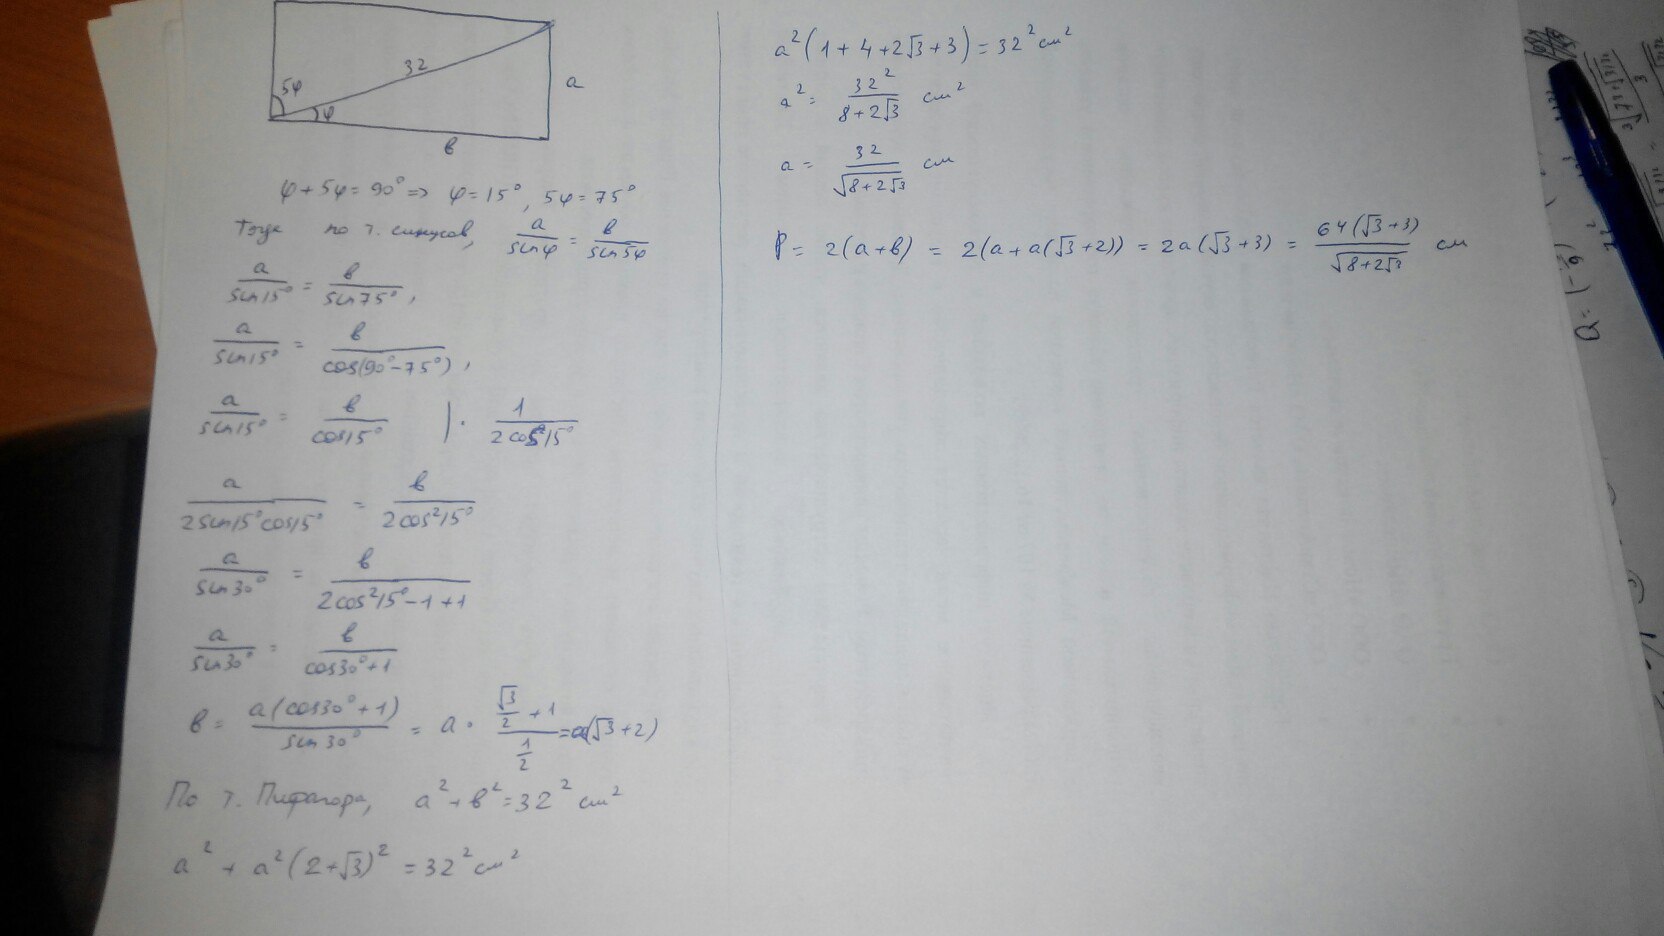 5φ
32
φ
a
в
φ + 5φ = 90° => φ = 15°, 5φ = 75°
Тогда по т. синусов, a/sinφ = в/sin5φ
a/sin15° = в/sin75°,
a/sin15° = в/cos(90°-75°),
a/sin15° = в/cos15° | · 1/2cos15°
a/2sin15°cos15° = в/2cos²15°
a/sin30° = в/2cos²15°-1+1
a/sin30° = в/cos30°+1
в = a(cos30°+1)/sin30° = a · (√3/2 + 1)/(1/2) = a(√3+2)
По т. Пифагора, a² + в² = 32² см²
a² + a²(2+√3)² = 32² см²
a²(1 + 4 + 2√3 + 3) = 32² см²
a² = 32²/8+2√3 см²
a = 32/√8+2√3 см
P = 2(a+в) = 2(a+a(√3+2)) = 2a(√3+3) = 64(√3+3)/√8+2√3 см